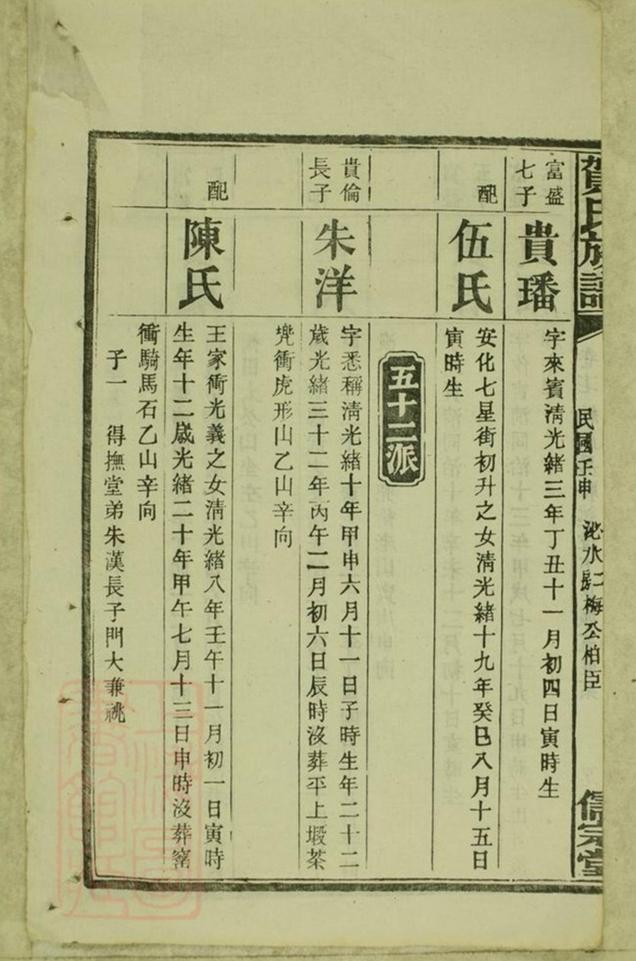 賀氏族譜
民國壬申
沱水 梅公柏臣
富盛
七子
貴璠
字來賓淸光緒三年丁丑十一月初四日寅時生
配
伍氏
安化七星街初升之女淸光緒十九年癸巳八月十五日
寅時生
五十二派
貴倫
長子
朱洋
字悉稱淸光緒十年甲申六月十一日子時生年二十二
歲光緒三十二年丙午二月初六日辰時沒葬平上塅茶
兠衝虎形山乙山辛向
配
陳氏
王家衝光義之女淸光緒八年壬午十一月初一日寅時
生年十二歲光緒二十年甲午七月十三日申時沒葬窰
衝騎馬石乙山辛向
子一 得撫堂弟朱漢長子門大兼祧